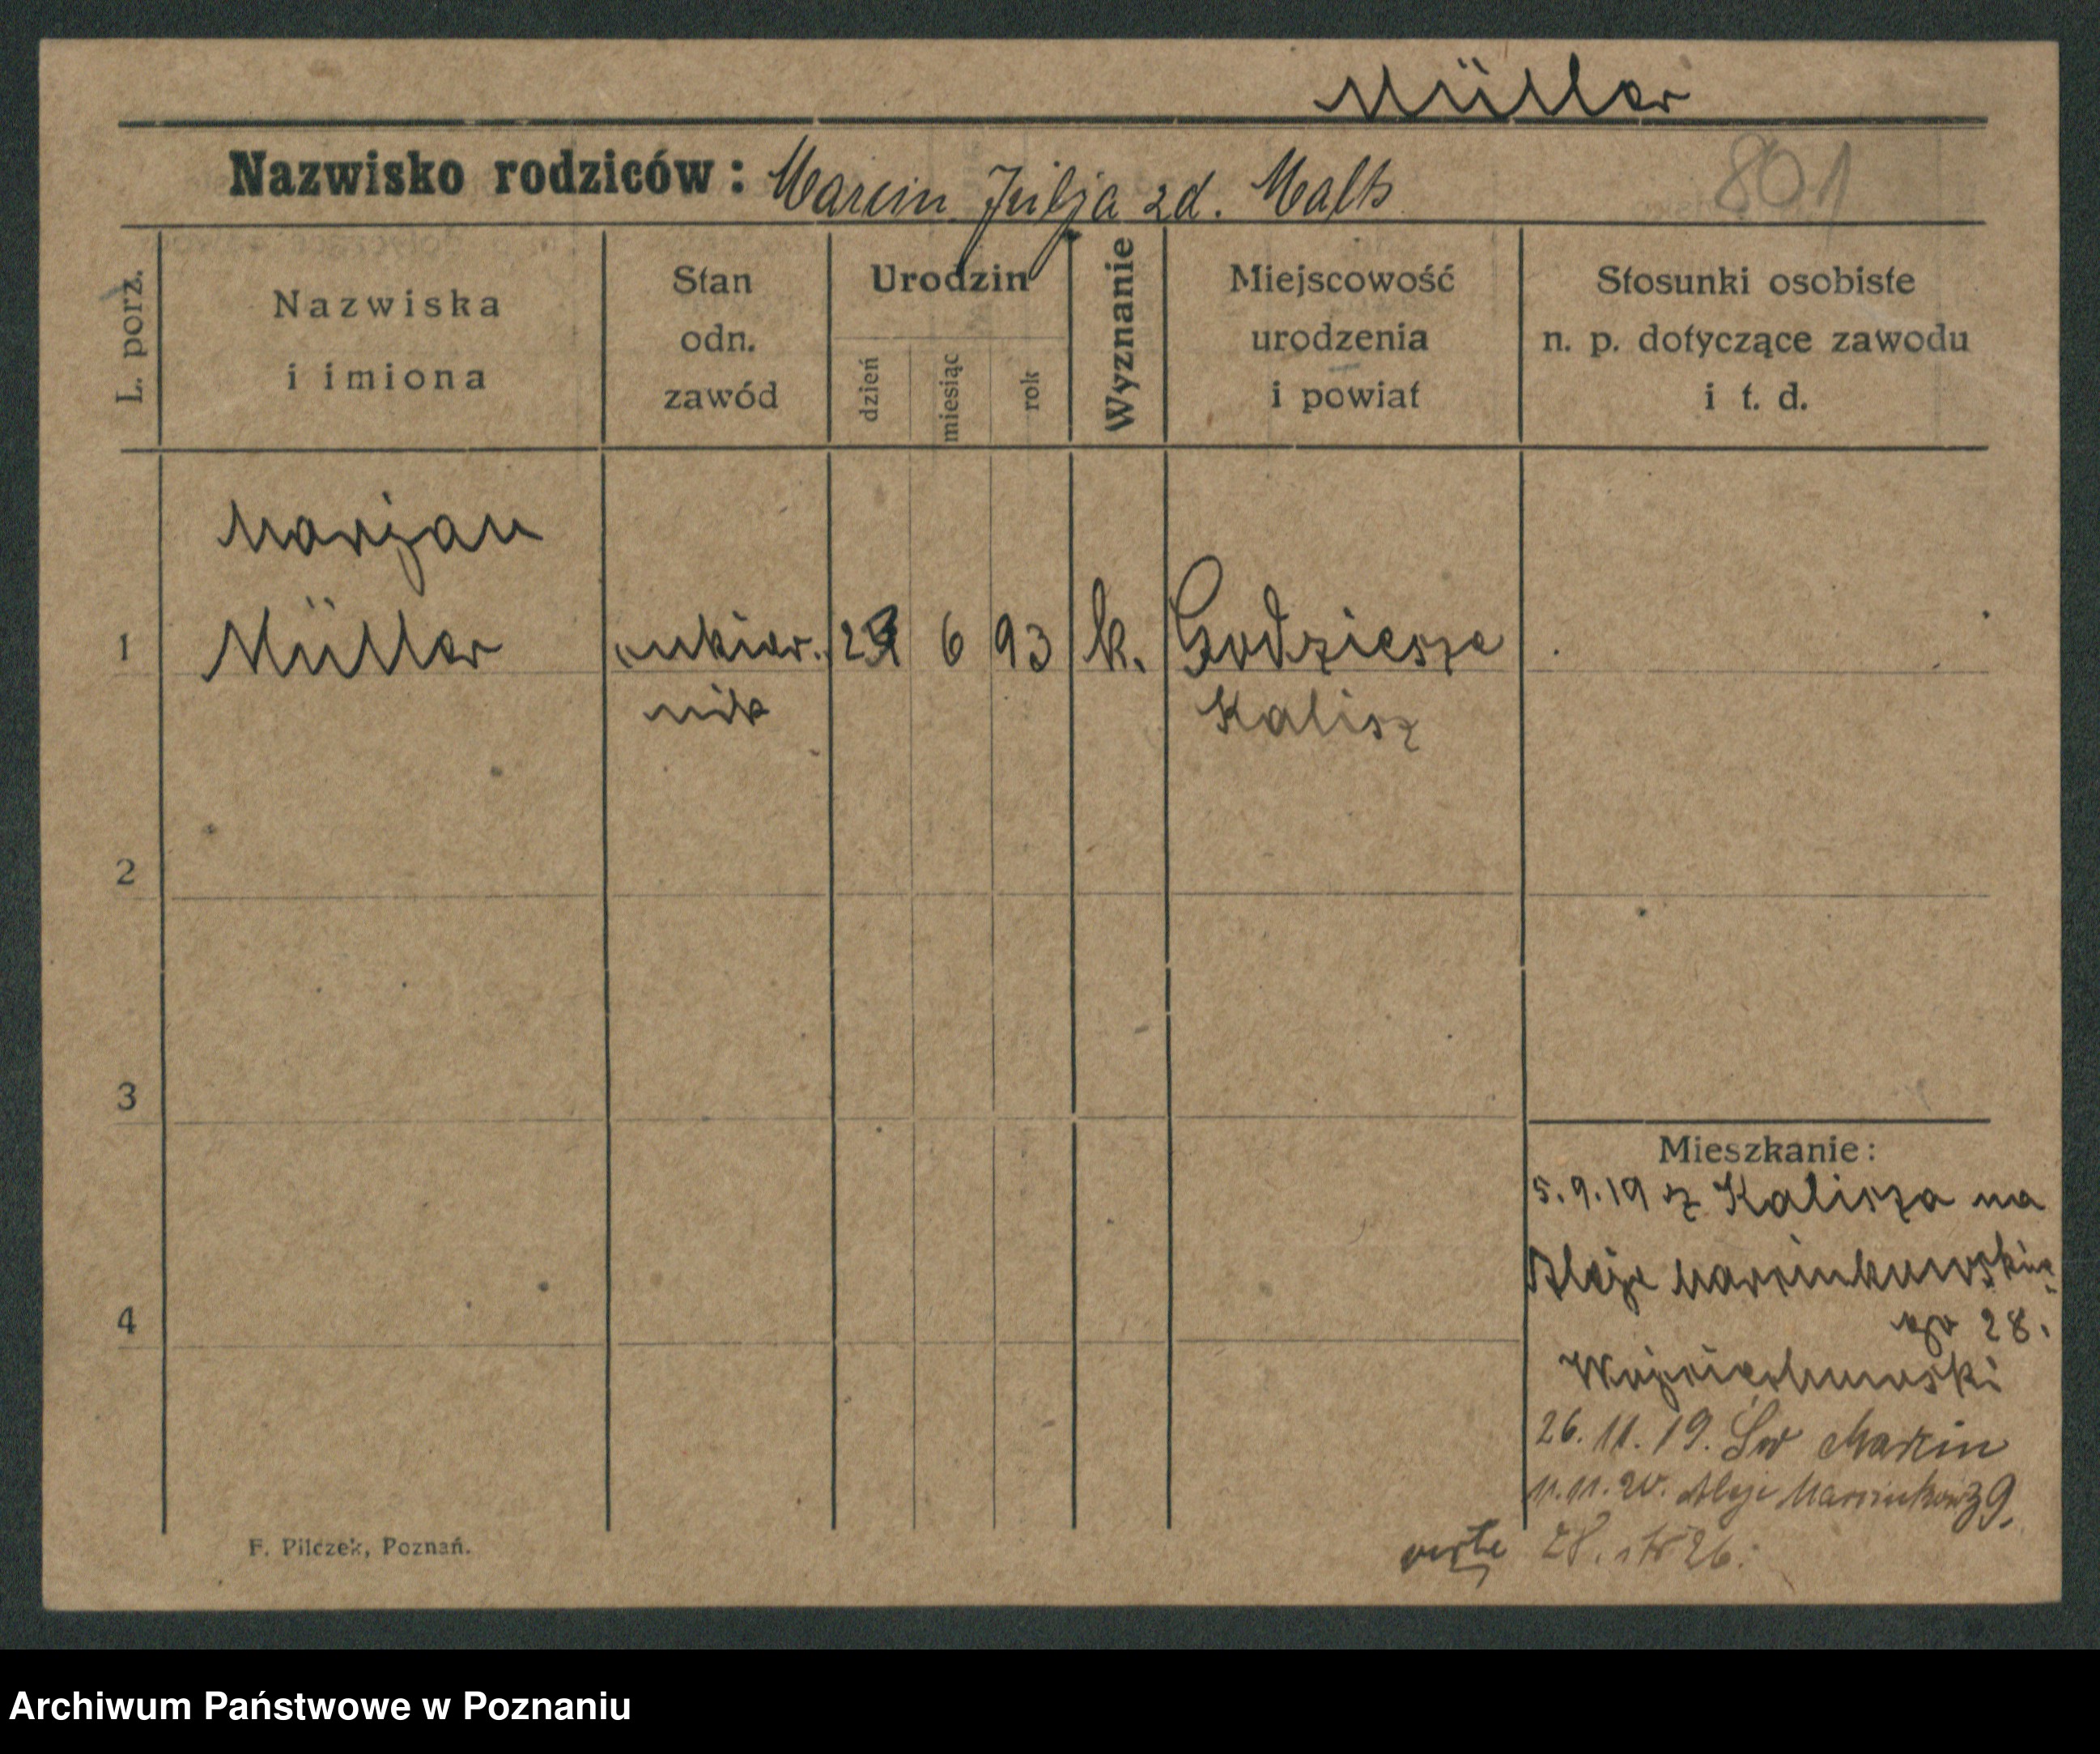 Müller
Nazwisko rodziców: Marcin Julja zd. Malts
801
L. porz.
Nazwiska
i imiona
Stan
odn.
zawód
Urodzin
dzień
miesiąc
rok
Wyznanie
Miejscowość
urodzenia
i powiat
Stosunki osobiste
n. p. dotyczące zawodu
i t. d.
Marjan
1 Müller cukier. 6 93 k. Godziesze
nik Kalisz
2
3
4
Mieszkanie:
5.9.19 z Kalisza na
Aleje Marcinkowskie-
go 28.
Wojciechowski
26.11.19. Św Marcin
11.11.20. Aleje Marcinkow
verte
F. Pilczek, Poznań.
Archiwum Państwowe w Poznaniu